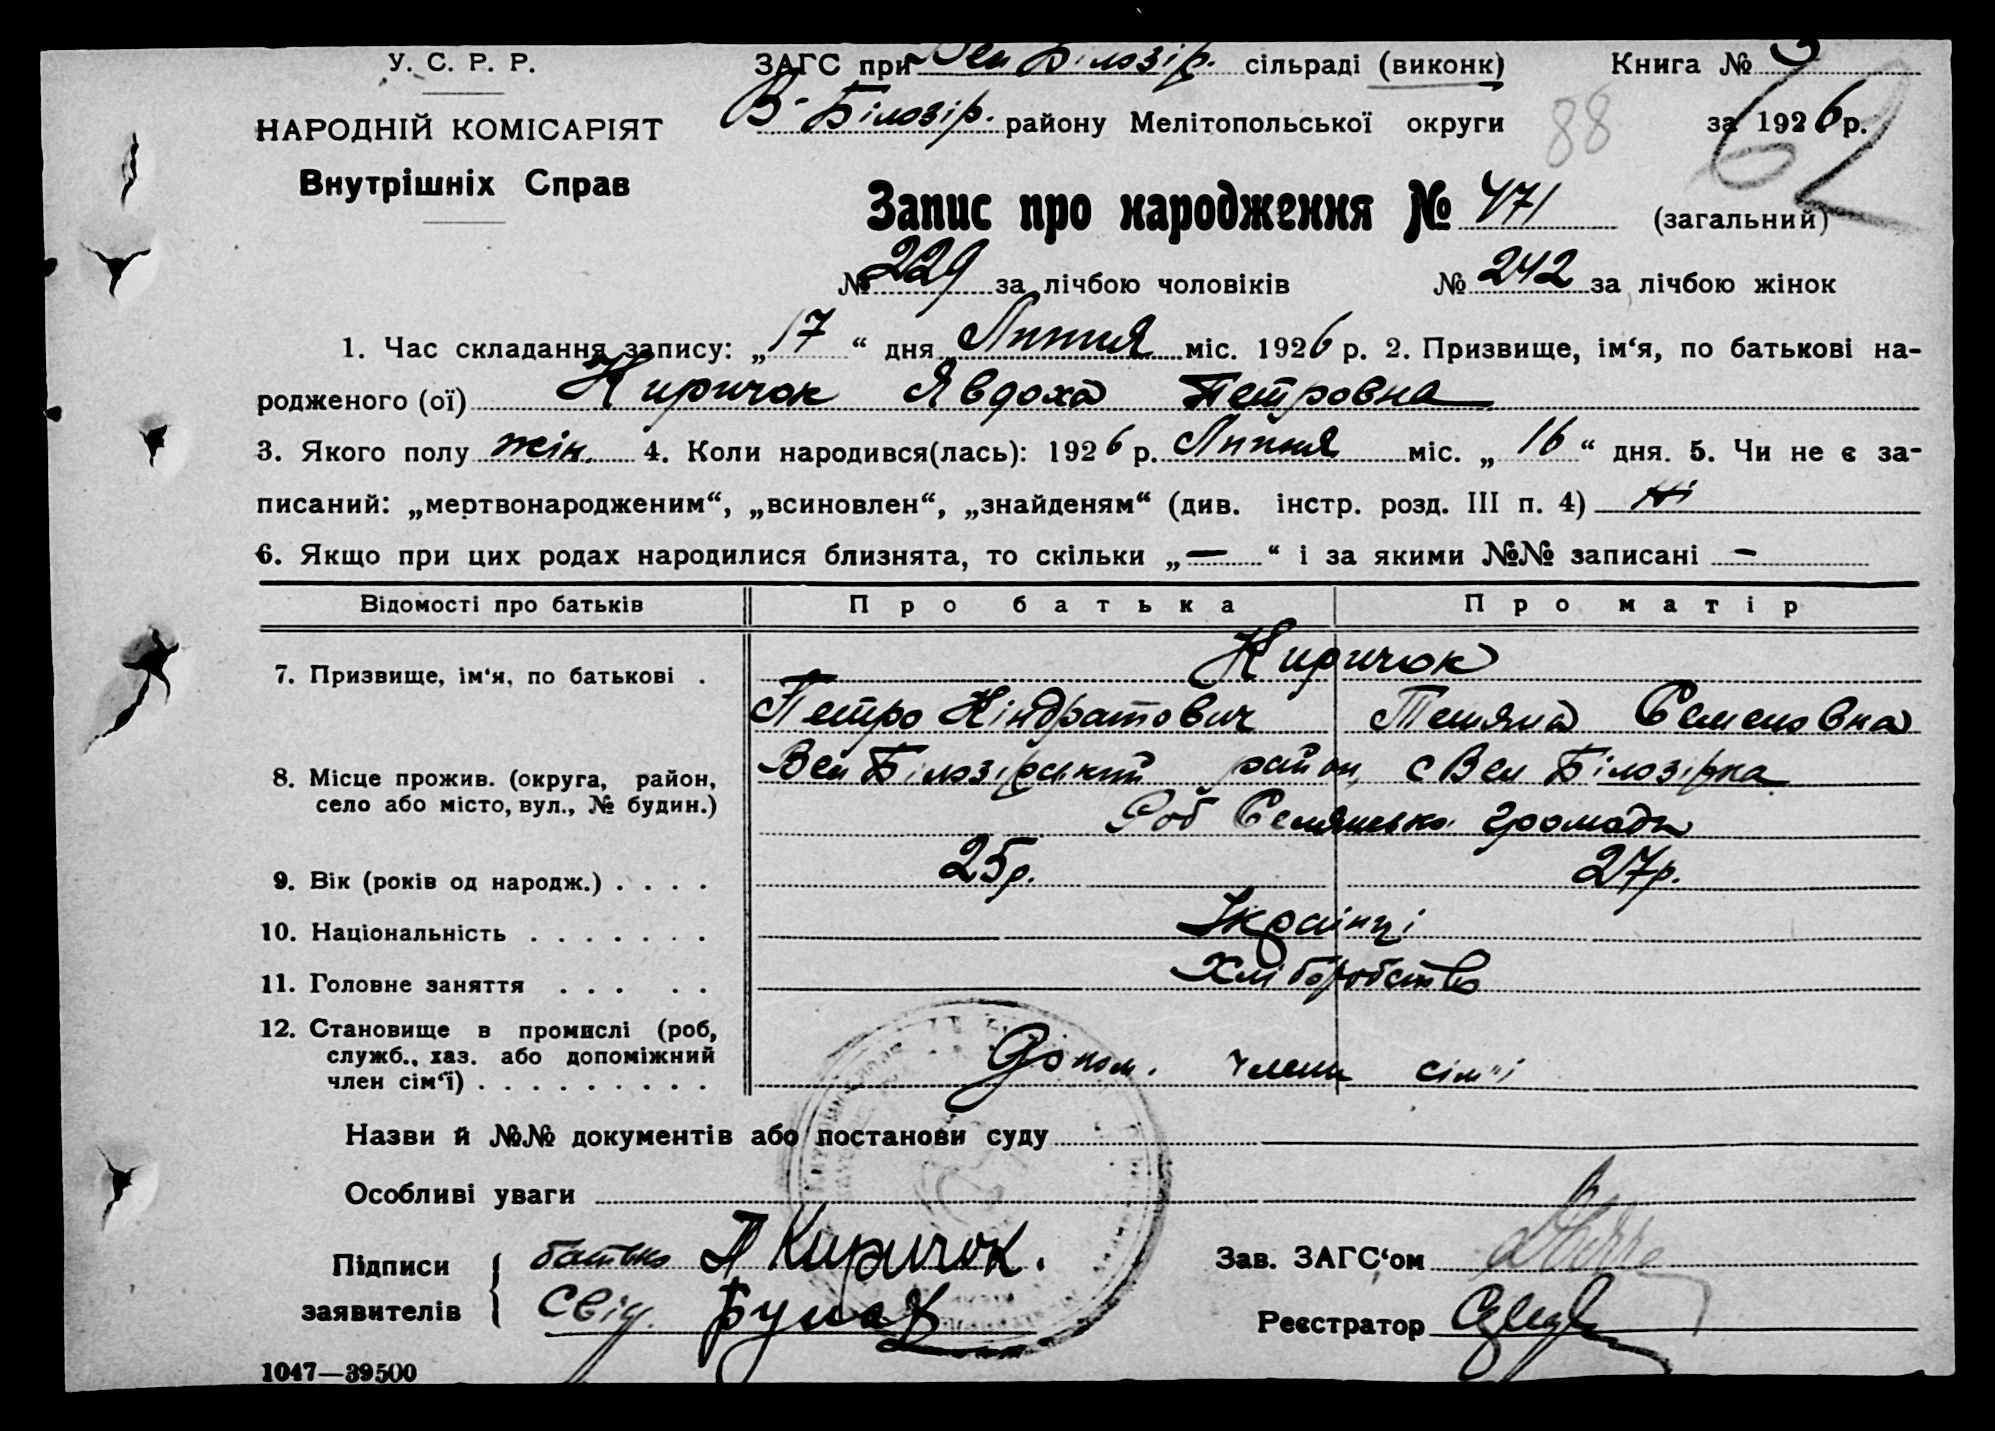 У. С. Р. Р.
НАРОДНІЙ КОМІСАРІЯТ
Внутрішніх Справ
ЗАГС при Вел Білозір. сільраді (виконк) Книга № 3
В-Білозір. району Мелітопольської округи за 1926 р.
88 62
Запис про народження № 471 (загальний)
№ 229 за лічбою чоловіків № 242 за лічбою жінок
1. Час складання запису: „17“ дня Липня міс. 1926 р. 2. Призвище, ім‘я, по батькові на-
родженого (ої) Киричок Явдоха Петровна
3. Якого полу жін. 4. Коли народився(лась): 1926 р. Липня міс. „16“ дня. 5. Чи не є за-
писаний: „мертвонародженим“, „всиновлен“, „знайденям“ (див. інстр. розд. III п. 4) ні
6. Якщо при цих родах народилися близнята, то скільки „—“ і за якими №№ записані —
Відомості про батьків Про батька Про матір
7. Призвище, ім‘я, по батькові . Киричок
Петро Кіндратович Тетяна Семеновна
8. Місце прожив. (округа, район, село або місто, вул., № будин.) Вел Білозірський район, с Вел Білозірка
громади
9. Вік (років од народж.) . . . . 25р. 27р.
10. Національність . . . . . . . Українці
11. Головне заняття . . . . . Хліборобство
12. Становище в промислі (роб, служб., хаз. або допоміжний член сім‘ї) . . . . . . . . . Допом. члени сім'ї
Назви й №№ документів або постанови суду
Особливі уваги
Підписи заявителів { батько П Киричок.
Свід.
Зав. ЗАГС‘ом
Реєстратор
1047—39500